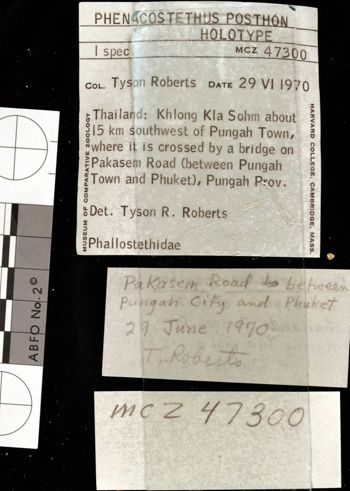 PHENACOSTETHUS POSTHON
HOLOTYPE
1 spec MCZ 47300
COL. Tyson Roberts DATE 29 VI 1970
Thailand: Khlong Kla Sohm about
15 km southwest of Pungah Town,
where it is crossed by a bridge on
Pakasem Road (between Pungah
Town and Phuket), Pungah Prov.
Det. Tyson R. Roberts
Phallostethidae
MUSEUM OF COMPARATIVE ZOOLOGY
HARVARD COLLEGE, CAMBRIDGE, MASS.
Pakasem Road between
Pungah City and Phuket
29 June 1970
T. Roberts
MCZ 47300
ABFO No. 2 ©